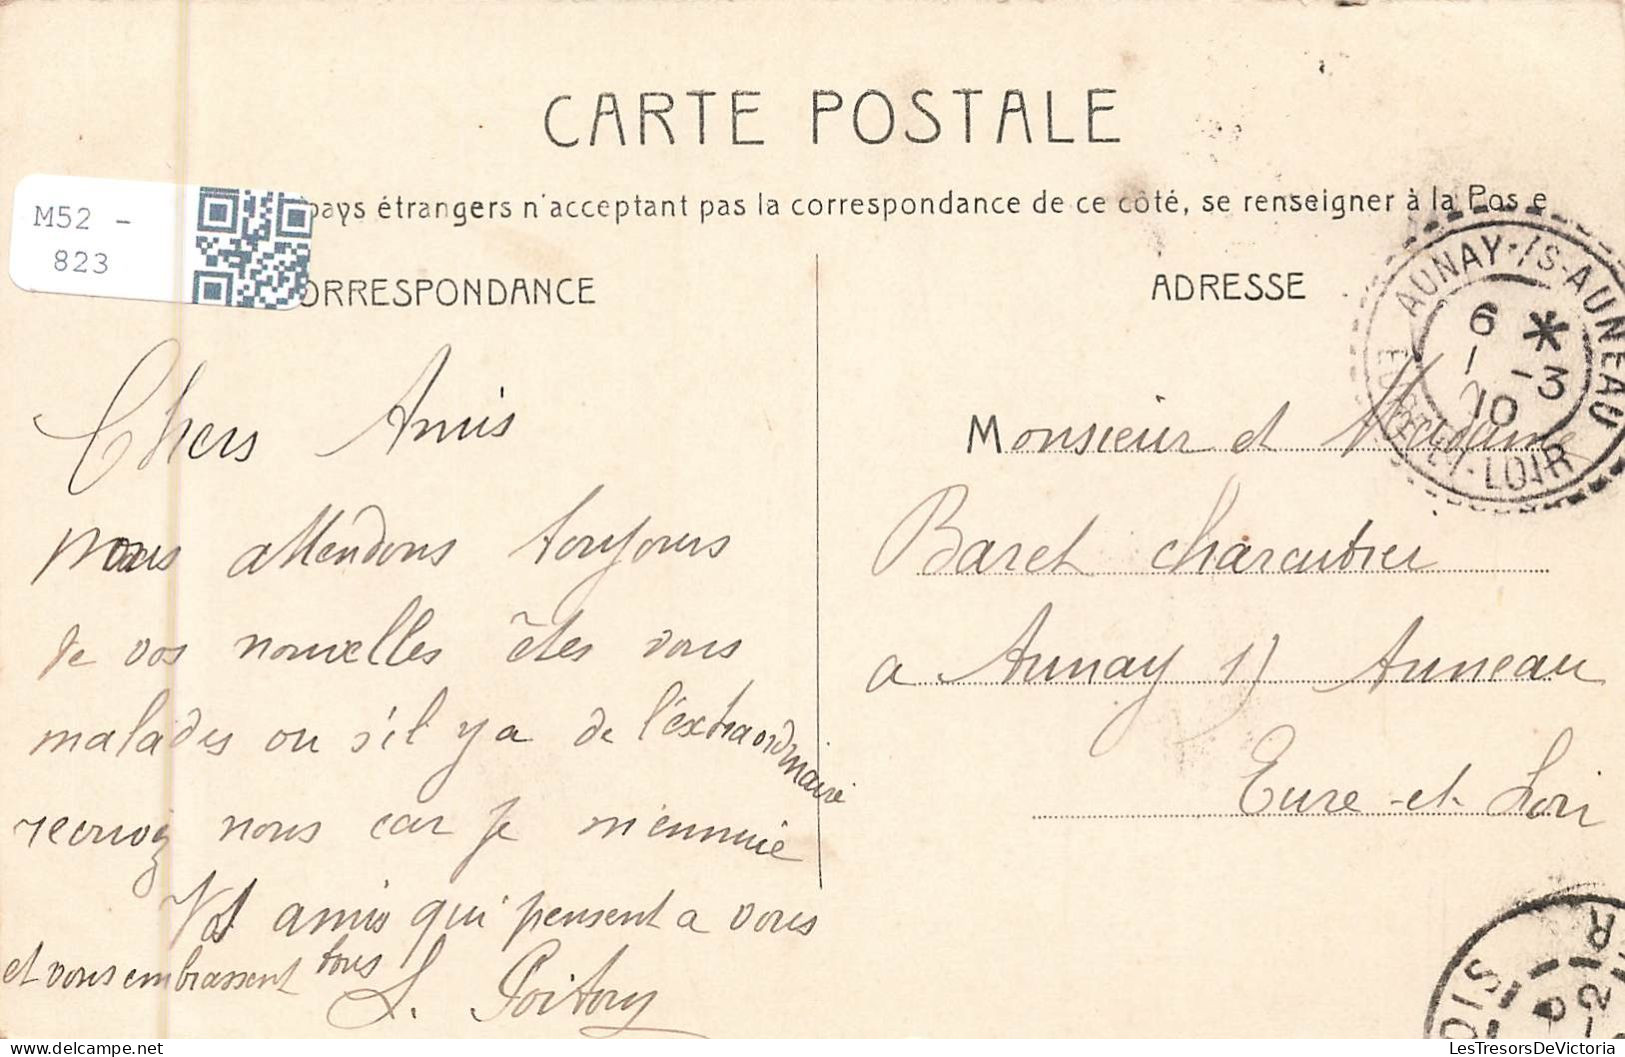 CARTE POSTALE
M52 -
823
pays étrangers n'acceptant pas la correspondance de ce côté, se renseigner à la Pos e
ORRESPONDANCE
Chers Amis
nous attendons toujours
de vos nouvelles êtes vous
malades ou s'il y a de l'éxtraordinaire
car je m'ennuie
Vos amis qui pensent a vous
et vous embrassent tous
L. Poitory
ADRESSE
AUNAY-/S-AUNEAU
6 *
1 -3
10
EURE-ET-LOIR
Monsieur et Madame
Baret charcutier
a Aunay s/ Auneau
Eure-et-Loir
OIS
LesTresorsDeVictoria